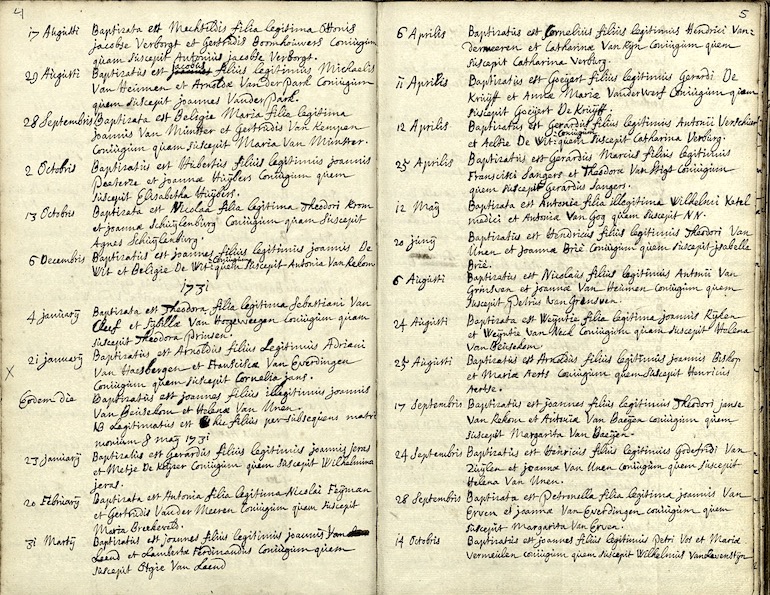 4
17 Augusti Baptizata est Mechtildis filia legitima Ottonis
jacobse Verborgt et Gertrudis Boomhouwers Coniugum
quam suscepit Antonius jacobse Verborgt.
29 Augusti Baptizatus est jacobus filius legitimus Michaelis
Van Heumen et Arnoldæ Van der Park Coniugum
quem suscepit joannes Vander Park.
28 Septembris Baptizata est Beligie Maria filia legitima
joannis Van Munster et Gertrudis Van Kempen
Coniugum quam suscepit Maria Van Munster.
2 Octobris Baptizatus est Hibertus filius legitimus joannis
et joannæ Huijbers Coniugum quem
suscepit Elisabetha Huijbers.
13 Octobris Baptizata est Nicolaa filia legitima Theodori Krom
et joannæ Schuijlenburg Coniugum quam suscepit
Agnes Schuijlenburg.
6 Decembris Baptizatus est joannes filius legitimus joannis De
Wit et Beligie De Wit coniugum quem suscepit Antonia Van Rekom
1731
4 januarij Baptizata est Theodora filia legitima Sebastiani Van
Cleef et Sybillæ Van Hogeweegen coniugum quam
suscepit Theodora Prinsen.
21 januarij Baptizatus est Arnoldus filius Legitimus Adriani
Van Haesbergen et Fransiscæ Van Everdingen
Coniugum quem suscepit Cornelia jans.
X
Eodem die Baptizatus est joannes filius illegitimus joannis
Van Beusekom et Helenæ Van Unen.
NB Legitimatus est hic filius per subsequens matri
monium 8 maij 1731
23 januarij Baptizatus est Gerardus filius legitimus joannis jeras
et Metje De Keijzer Coniugum quem suscepit Wilhelmina
jeras.
20 Februarij Baptizata est Antonia filia legitima Nicolai Feijman
et Gertrudis Vander Meeren Coniugum quam suscepit
Maria Breekeveld.
31 Martij Baptizatus est joannes filius legitimus joannis Van
Leend et Lambertæ Ferdinandus Coniugum quem
suscepit Otgie Van Leend
5
6 Aprilis Baptizatus est Cornelius filius legitimus Hendrici Van-
dermeeren et Catharinæ Van Rijn Coniugum quem
suscepit Catharina Verburg.
11 Aprilis Baptizatus est Goeijert filius legitimus Gerardi De
Kruijff et Annæ Mariæ Vanderwerf Coniugum quem
suscepit Goeijert De Kruijff.
12 Aprilis Baptizatus est Gerardus filius legitimus Antonii Verschuer
et Aeltie De Wit coniugum quem suscepit Catharina Verburg.
25 Aprilis Baptizatus est Gerardus Marcus filius legitimus
Francisci Sangers et Theodoræ Van Stigt Coniugum
quem suscepit Gerardus Sangers.
12 Maij Baptizata est Antonia filia illegitima Wilhelmi Ketel
medici et Antonia Van Gog quem suscepit N.N.
20 junij Baptizatus est Hendricus filius legitimus Theodori Van
Unen et joannæ Brie Coniugum quem suscepit jsabelle
Brie.
6 Augusti Baptizatus est Nicolaus filius legitimus Antonii Van
Grinsven et joannæ Van Heumen Coniugum quem
suscepit Petrus Van Grinsven.
24 Augusti Baptizata est Weijntie filia legitima joannis Rijken
et Weijntie Van Neel Coniugum quam suscepit Helena
Van Beusekom.
25 Augusti Baptizatus est Arnoldus filius legitimus joannis Biskop
et Mariæ Aerts Coniugum quem suscepit Henricus
Aertse.
17 Septembris Baptizatus est joannes filius legitimus Theodori janse
Van Rekom et Antoniæ Van Baeijen coniugum quem
suscepit Margarita Van Baeijen.
24 Septembris Baptizatus est Henricus filius legitimus Godefridi Van
Zuijlen et joannæ Van Unen coniugum quem suscepit
Helena Van Unen.
28 Septembris Baptizata est Petronella filia legitima joannis Van
Erven et joannæ Van Everdingen coniugum quam
suscepit Margarita Van Erven.
14 Octobris Baptizatus est joannes filius legitimus Petri Vos et Mariæ
Vermeulen coniugum quem suscepit Wilhelmus Van Leevensteijn